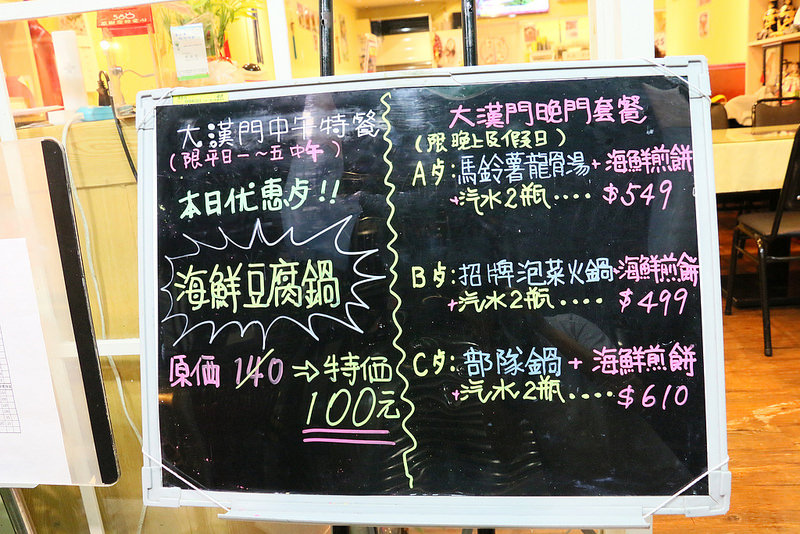 大漢門中午特餐
(限平日一~五中午)
本日优惠歺!!
海鮮豆腐鍋
原価 140 ⇒ 特価
100元
大漢門晚門套餐
(限晚上及假日)
A歺:馬鈴薯龍骨湯+海鮮煎餅
+汽水2瓶.... $549
B歺:招牌泡菜火鍋+海鮮煎餅
+汽水2瓶.... $499
C歺:部隊鍋+海鮮煎餅
+汽水2瓶....$610